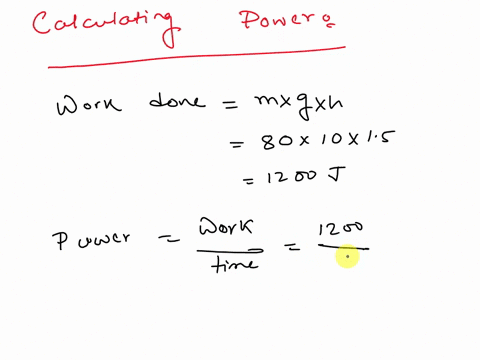 Calculating Power:
Work done = m×g×h
= 80 × 10 × 1.5
= 1200 J
Power = Work/time = 1200/